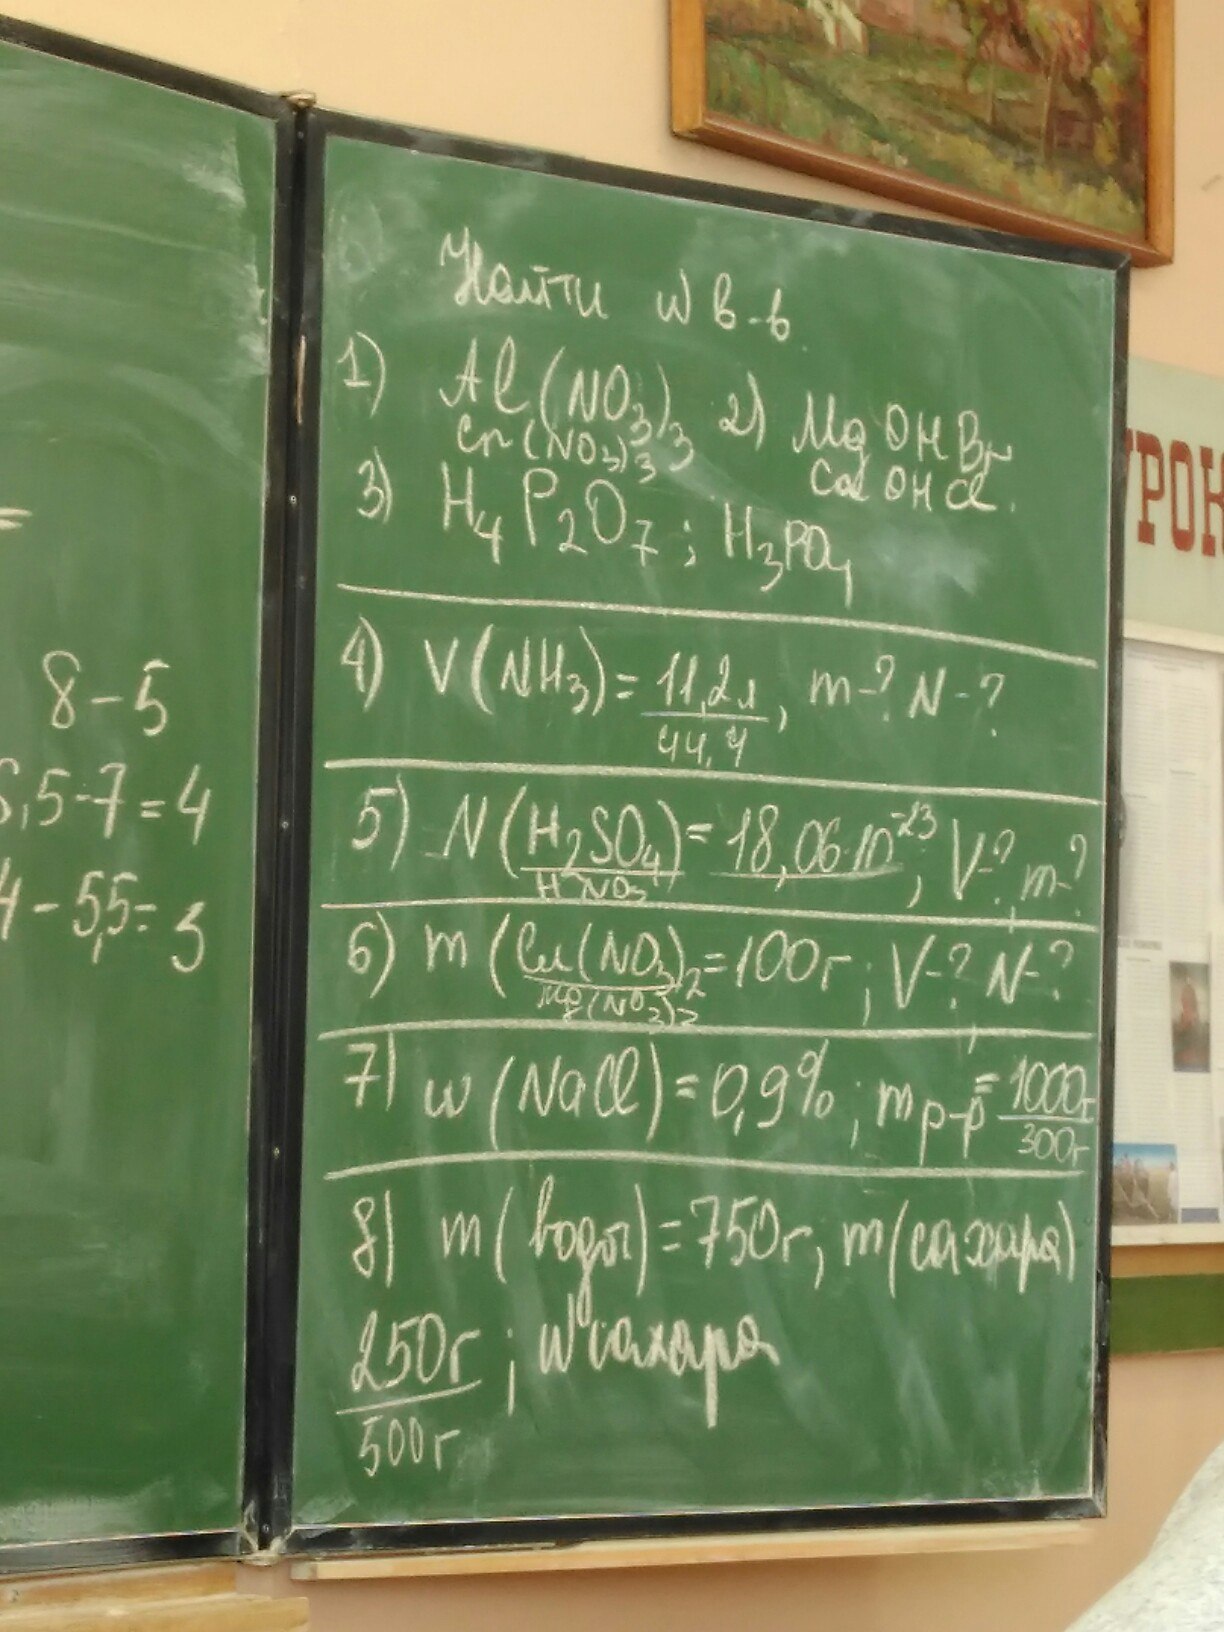 8-5
6,5-7=4
4-5,5=3
Найти w в-в
1) Al(NO3)3 2) MgOHBr
Cr(NO3)3 CaOHCl.
3) H4P2O7; H3PO4
4) V(NH3)=11,2л, m-? N-?
44,4
5) N(H2SO4)=18,06·10^-23, V-?, m-?
HNO3
6) m(Cu(NO3)2=100г; V-? N-?
Mg(NO3)2
7) w(NaCl)=0,9%; mр-р=1000г
300г
8) m(воды)=750г, m(сахара)
250г; w сахара
500г
УРОК